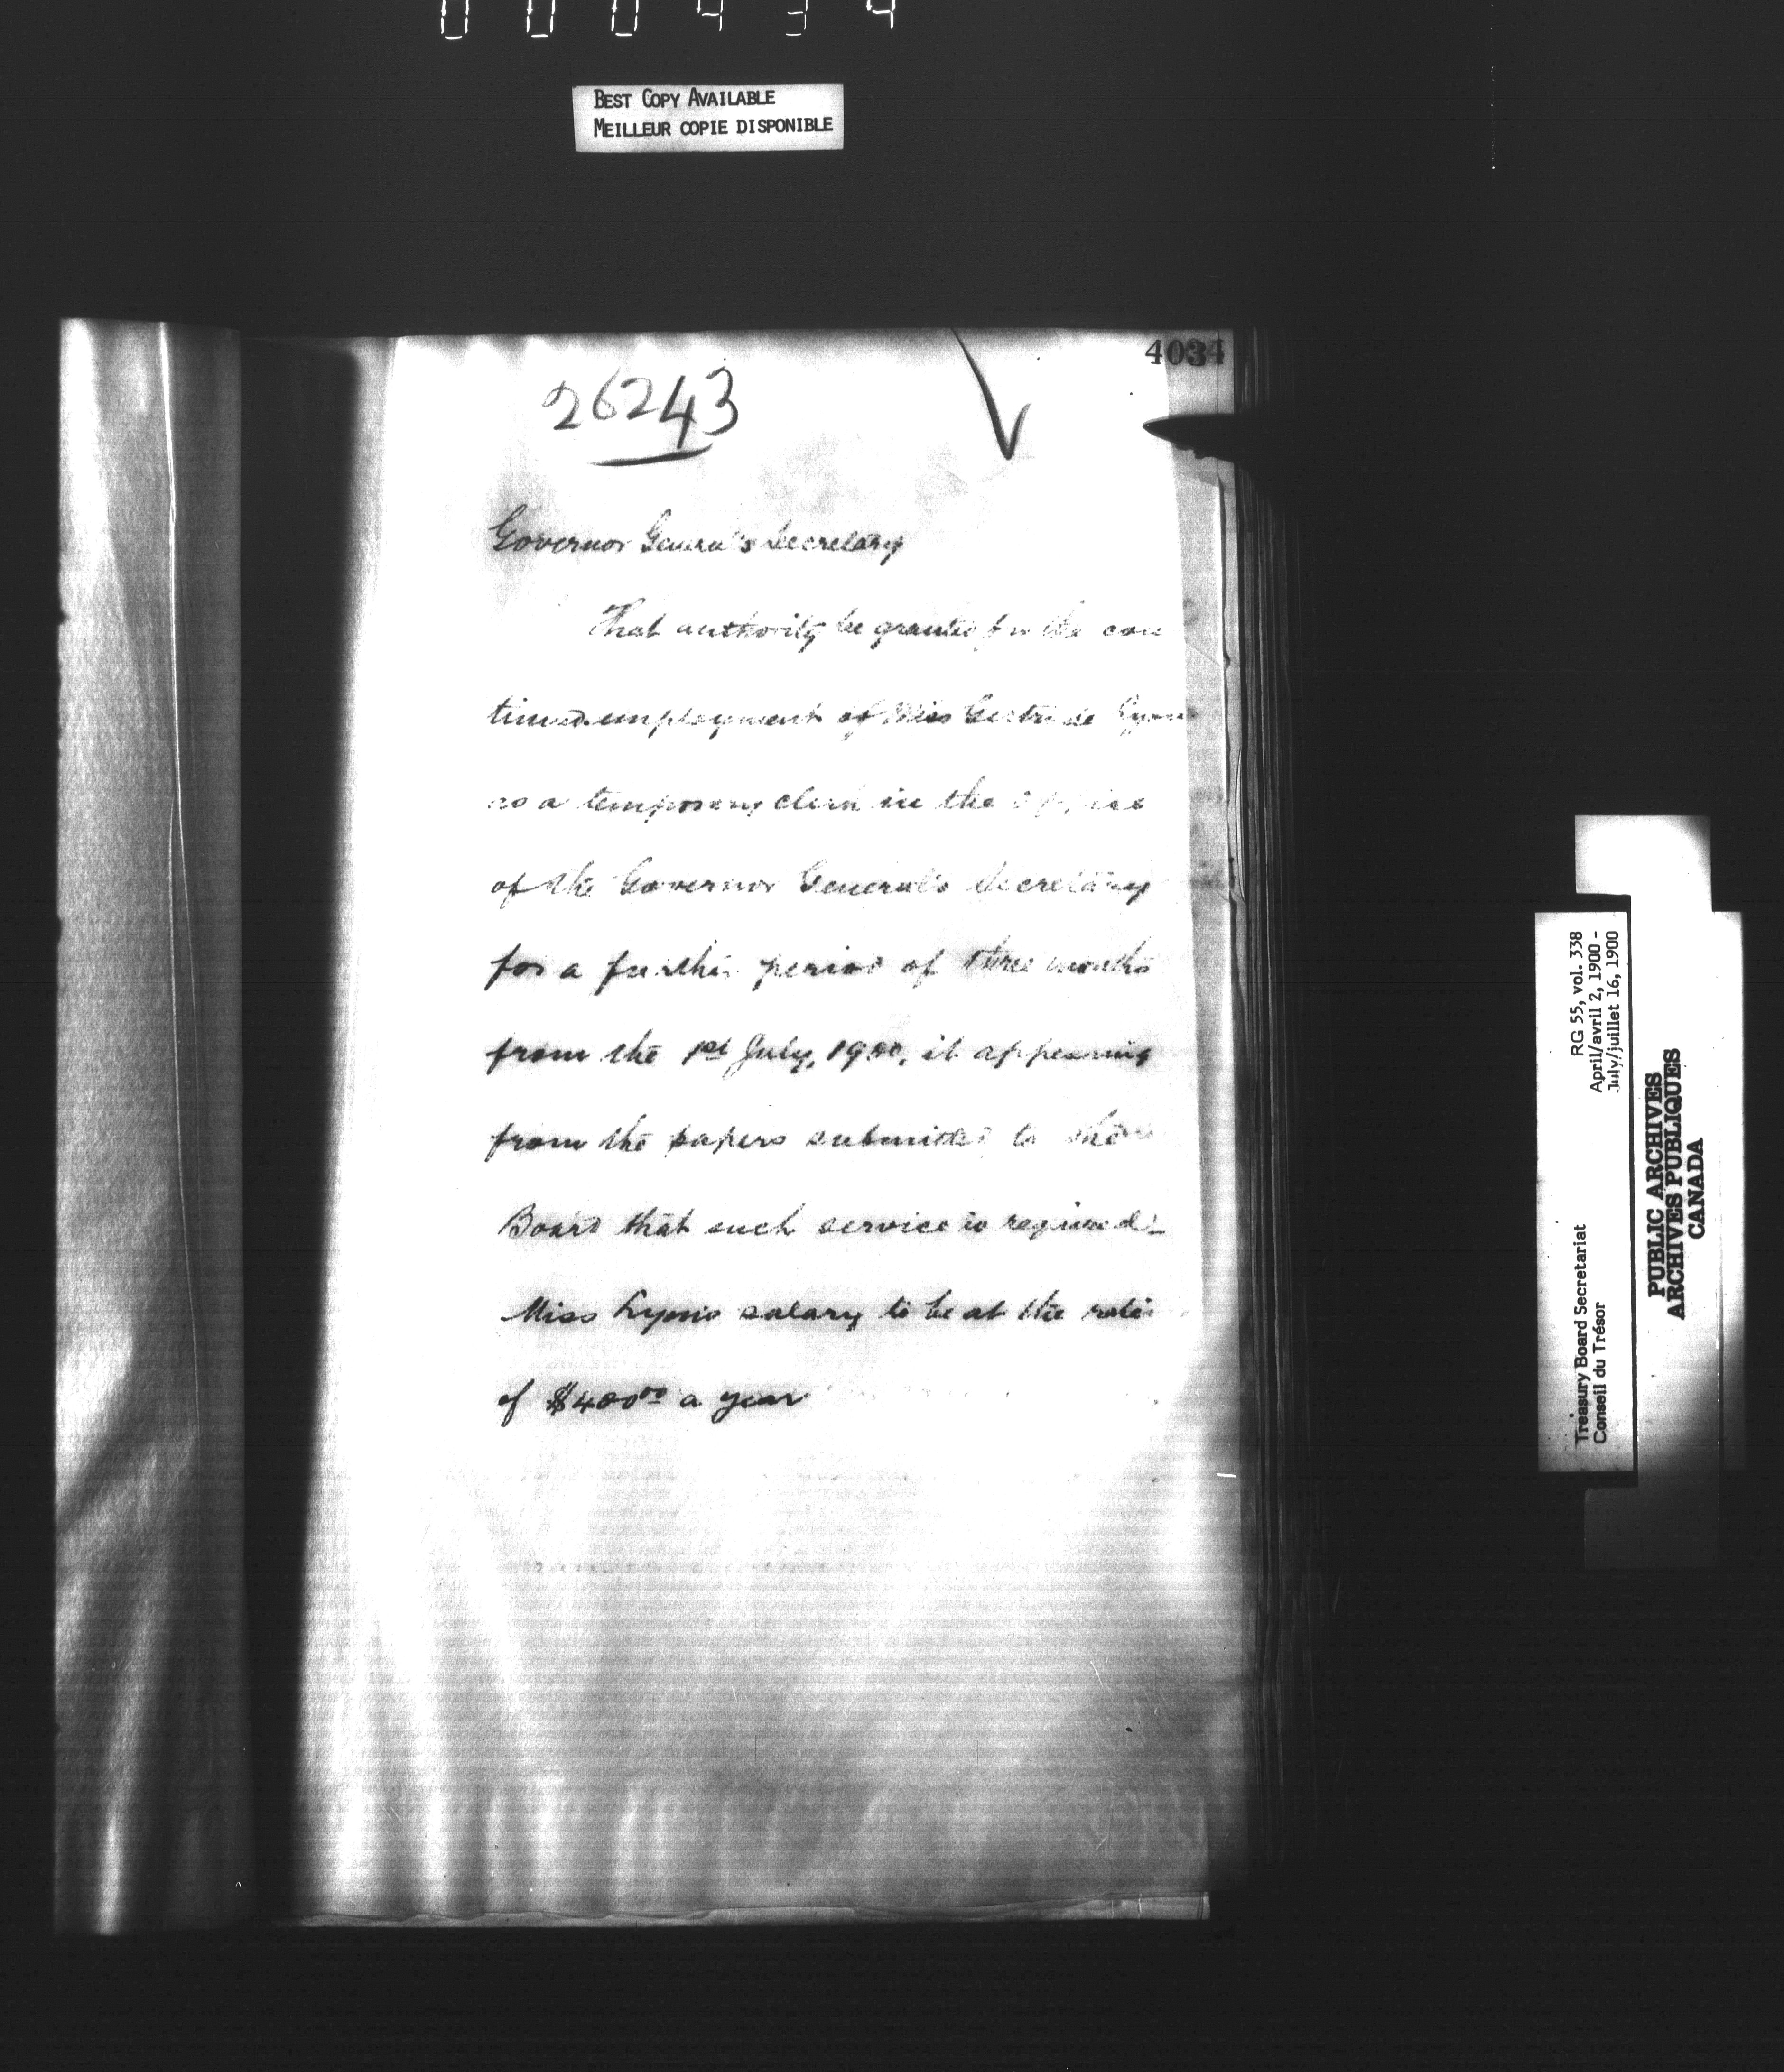 BEST COPY AVAILABLE
MEILLEUR COPIE DISPONIBLE
4034
26243
Governor General's Secretary
That authority be granted for the con
tinued employment of Miss Gertrude Lyons
as a temporary clerk in the Office
of the Governor General's Secretary
for a further period of three months
from the 1st July, 1900, it appearing
from the papers submitted to the
Board that such service is required.
Miss Lyons salary to be at the rate
of $400.00 a year
RG 55, vol. 338
April/avril 2, 1900 -
July/juillet 16, 1900
Treasury Board Secretariat
Conseil du Trésor
PUBLIC ARCHIVES
ARCHIVES PUBLIQUES
CANADA